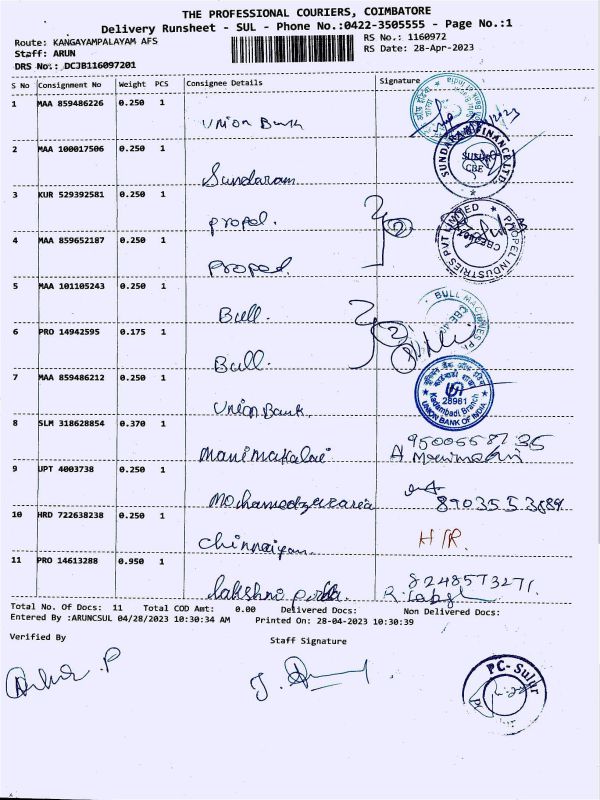 THE PROFESSIONAL COURIERS, COIMBATORE
Delivery Runsheet - SUL - Phone No.:0422-3505555 - Page No.:1
Route: KANGAYAMPALAYAM AFS
Staff: ARUN
DRS No.: DCJB116097201
RS No.: 1160972
RS Date: 28-Apr-2023
S No Consignment No Weight PCS Consignee Details Signature
1 MAA 859486226 0.250 1 Union Bank
2 MAA 100017506 0.250 1 Sundaram SUNDARAM FINANCE LTD. CBE
3 KUR 529392581 0.250 1 propel. 2
4 MAA 859652187 0.250 1 Propel. PROPEL INDUSTRIES PVT LIMITED
5 MAA 101105243 0.250 1 Bull. BULL MACHINES
6 PRO 14942595 0.175 1 Bull. 2
7 MAA 859486212 0.250 1 Union Bank. 28981 Branch UNION BANK OF INDIA
8 SLM 318628854 0.370 1 Manimakalai
9 UPT 4003738 0.250 1
10 HRD 722638238 0.250 1 Chinnaiyan. H/R.
11 PRO 14613288 0.950 1 8248573271.
Total No. Of Docs: 11 Total COD Amt: 0.00 Delivered Docs: Non Delivered Docs:
Entered By :ARUNCSUL 04/28/2023 10:30:34 AM Printed On: 28-04-2023 10:30:39
Verified By Staff Signature
PC-Sulur